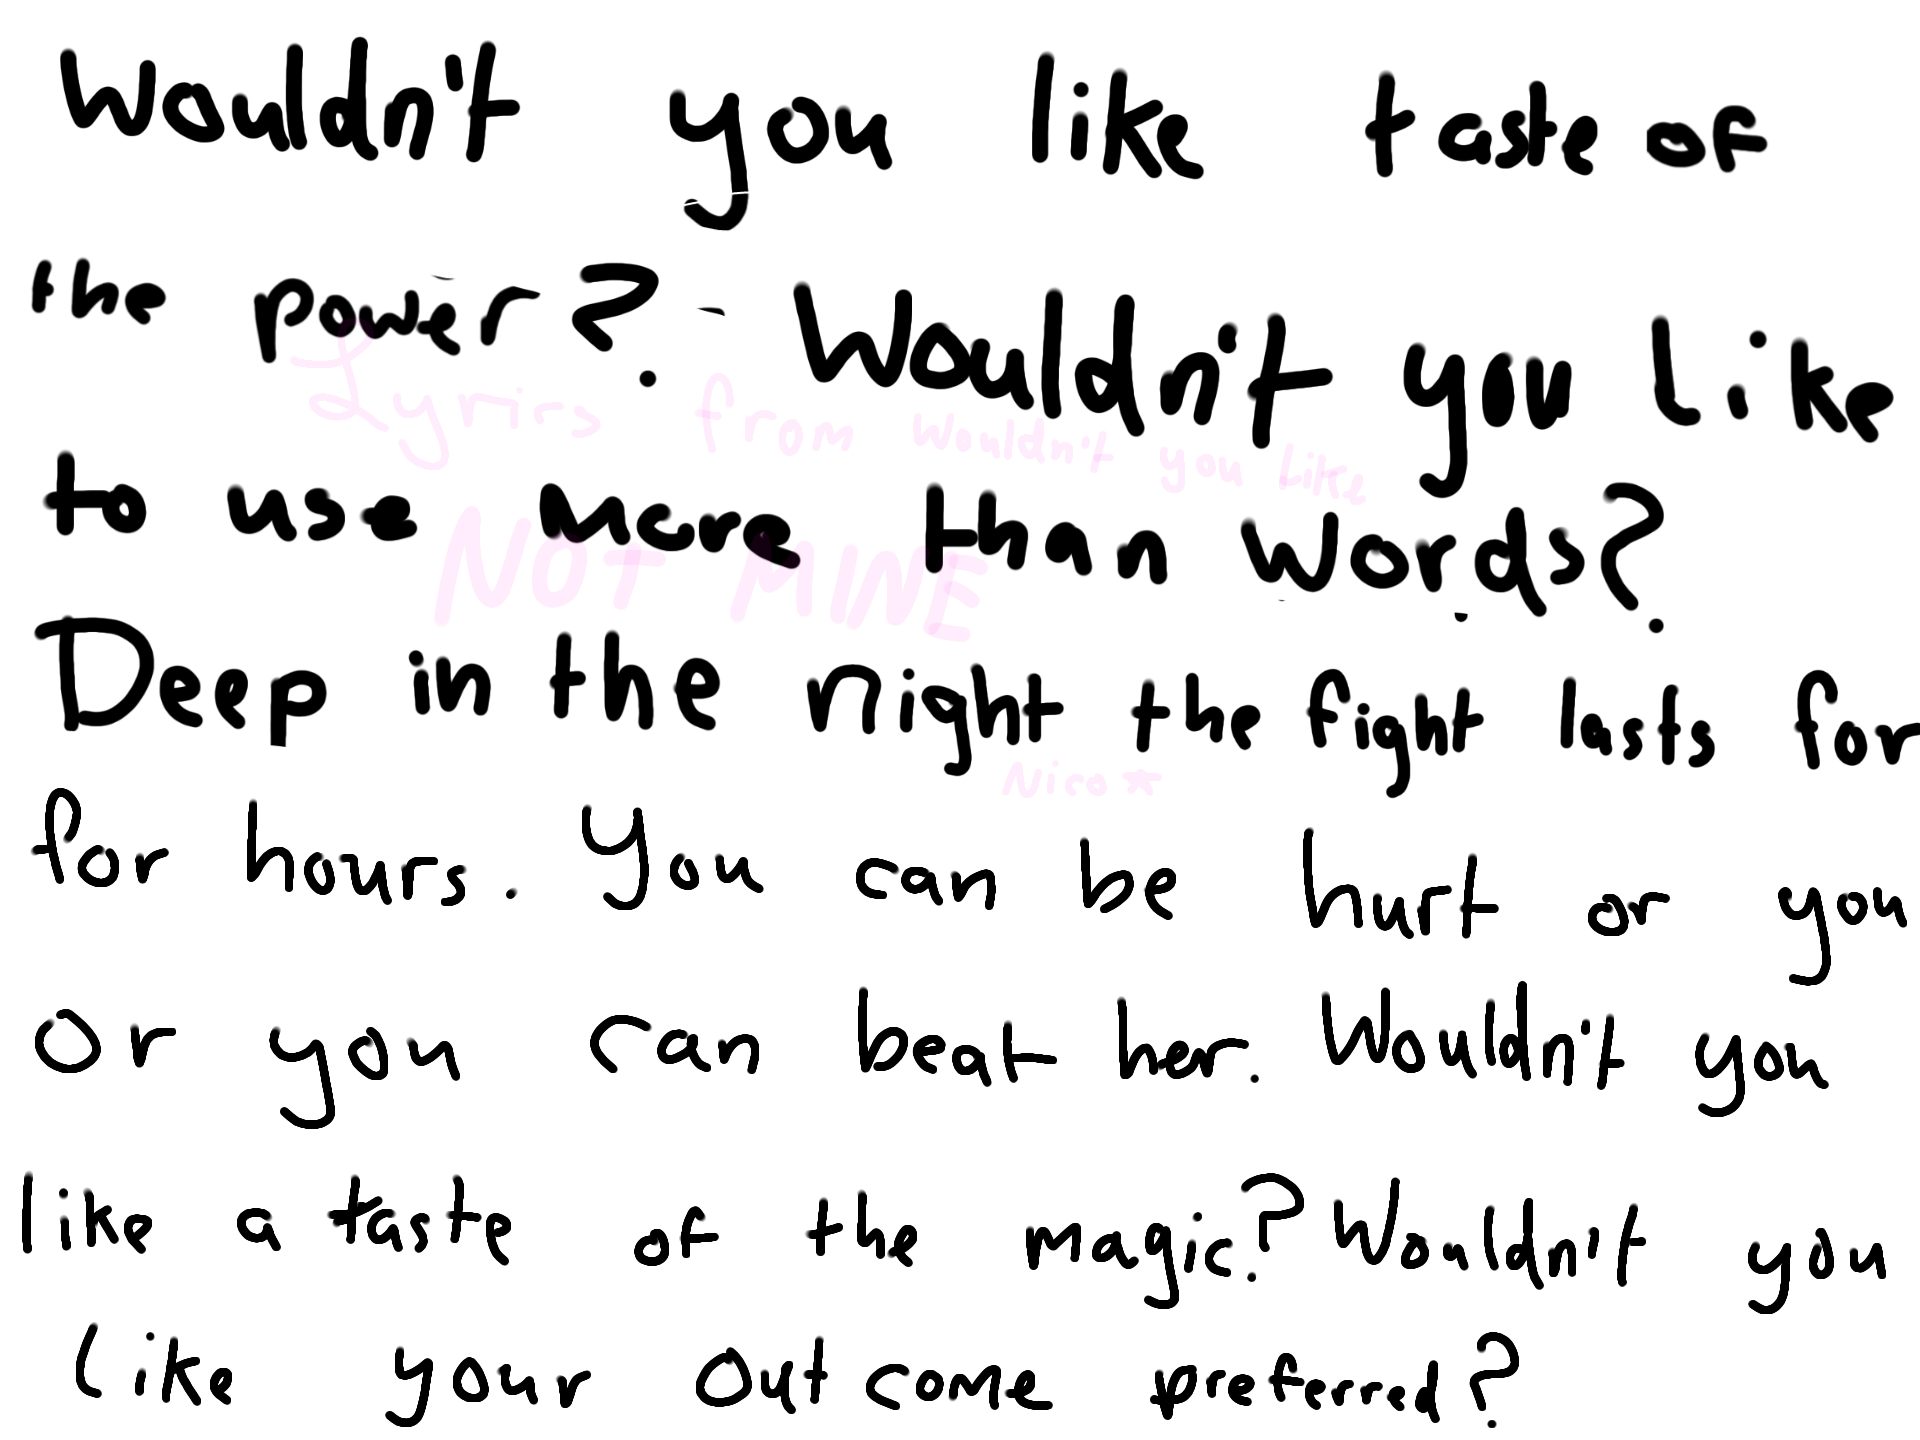 Wouldn't you like taste of
the power? Wouldn't you like
Lyrics from Wouldn't you Like
to use more than words?
NOT MINE
Deep in the night the fight lasts for
Nico
for hours. You can be hurt or you
or you can beat her. Wouldn't you
like a taste of the magic? Wouldn't you
like your outcome preferred?